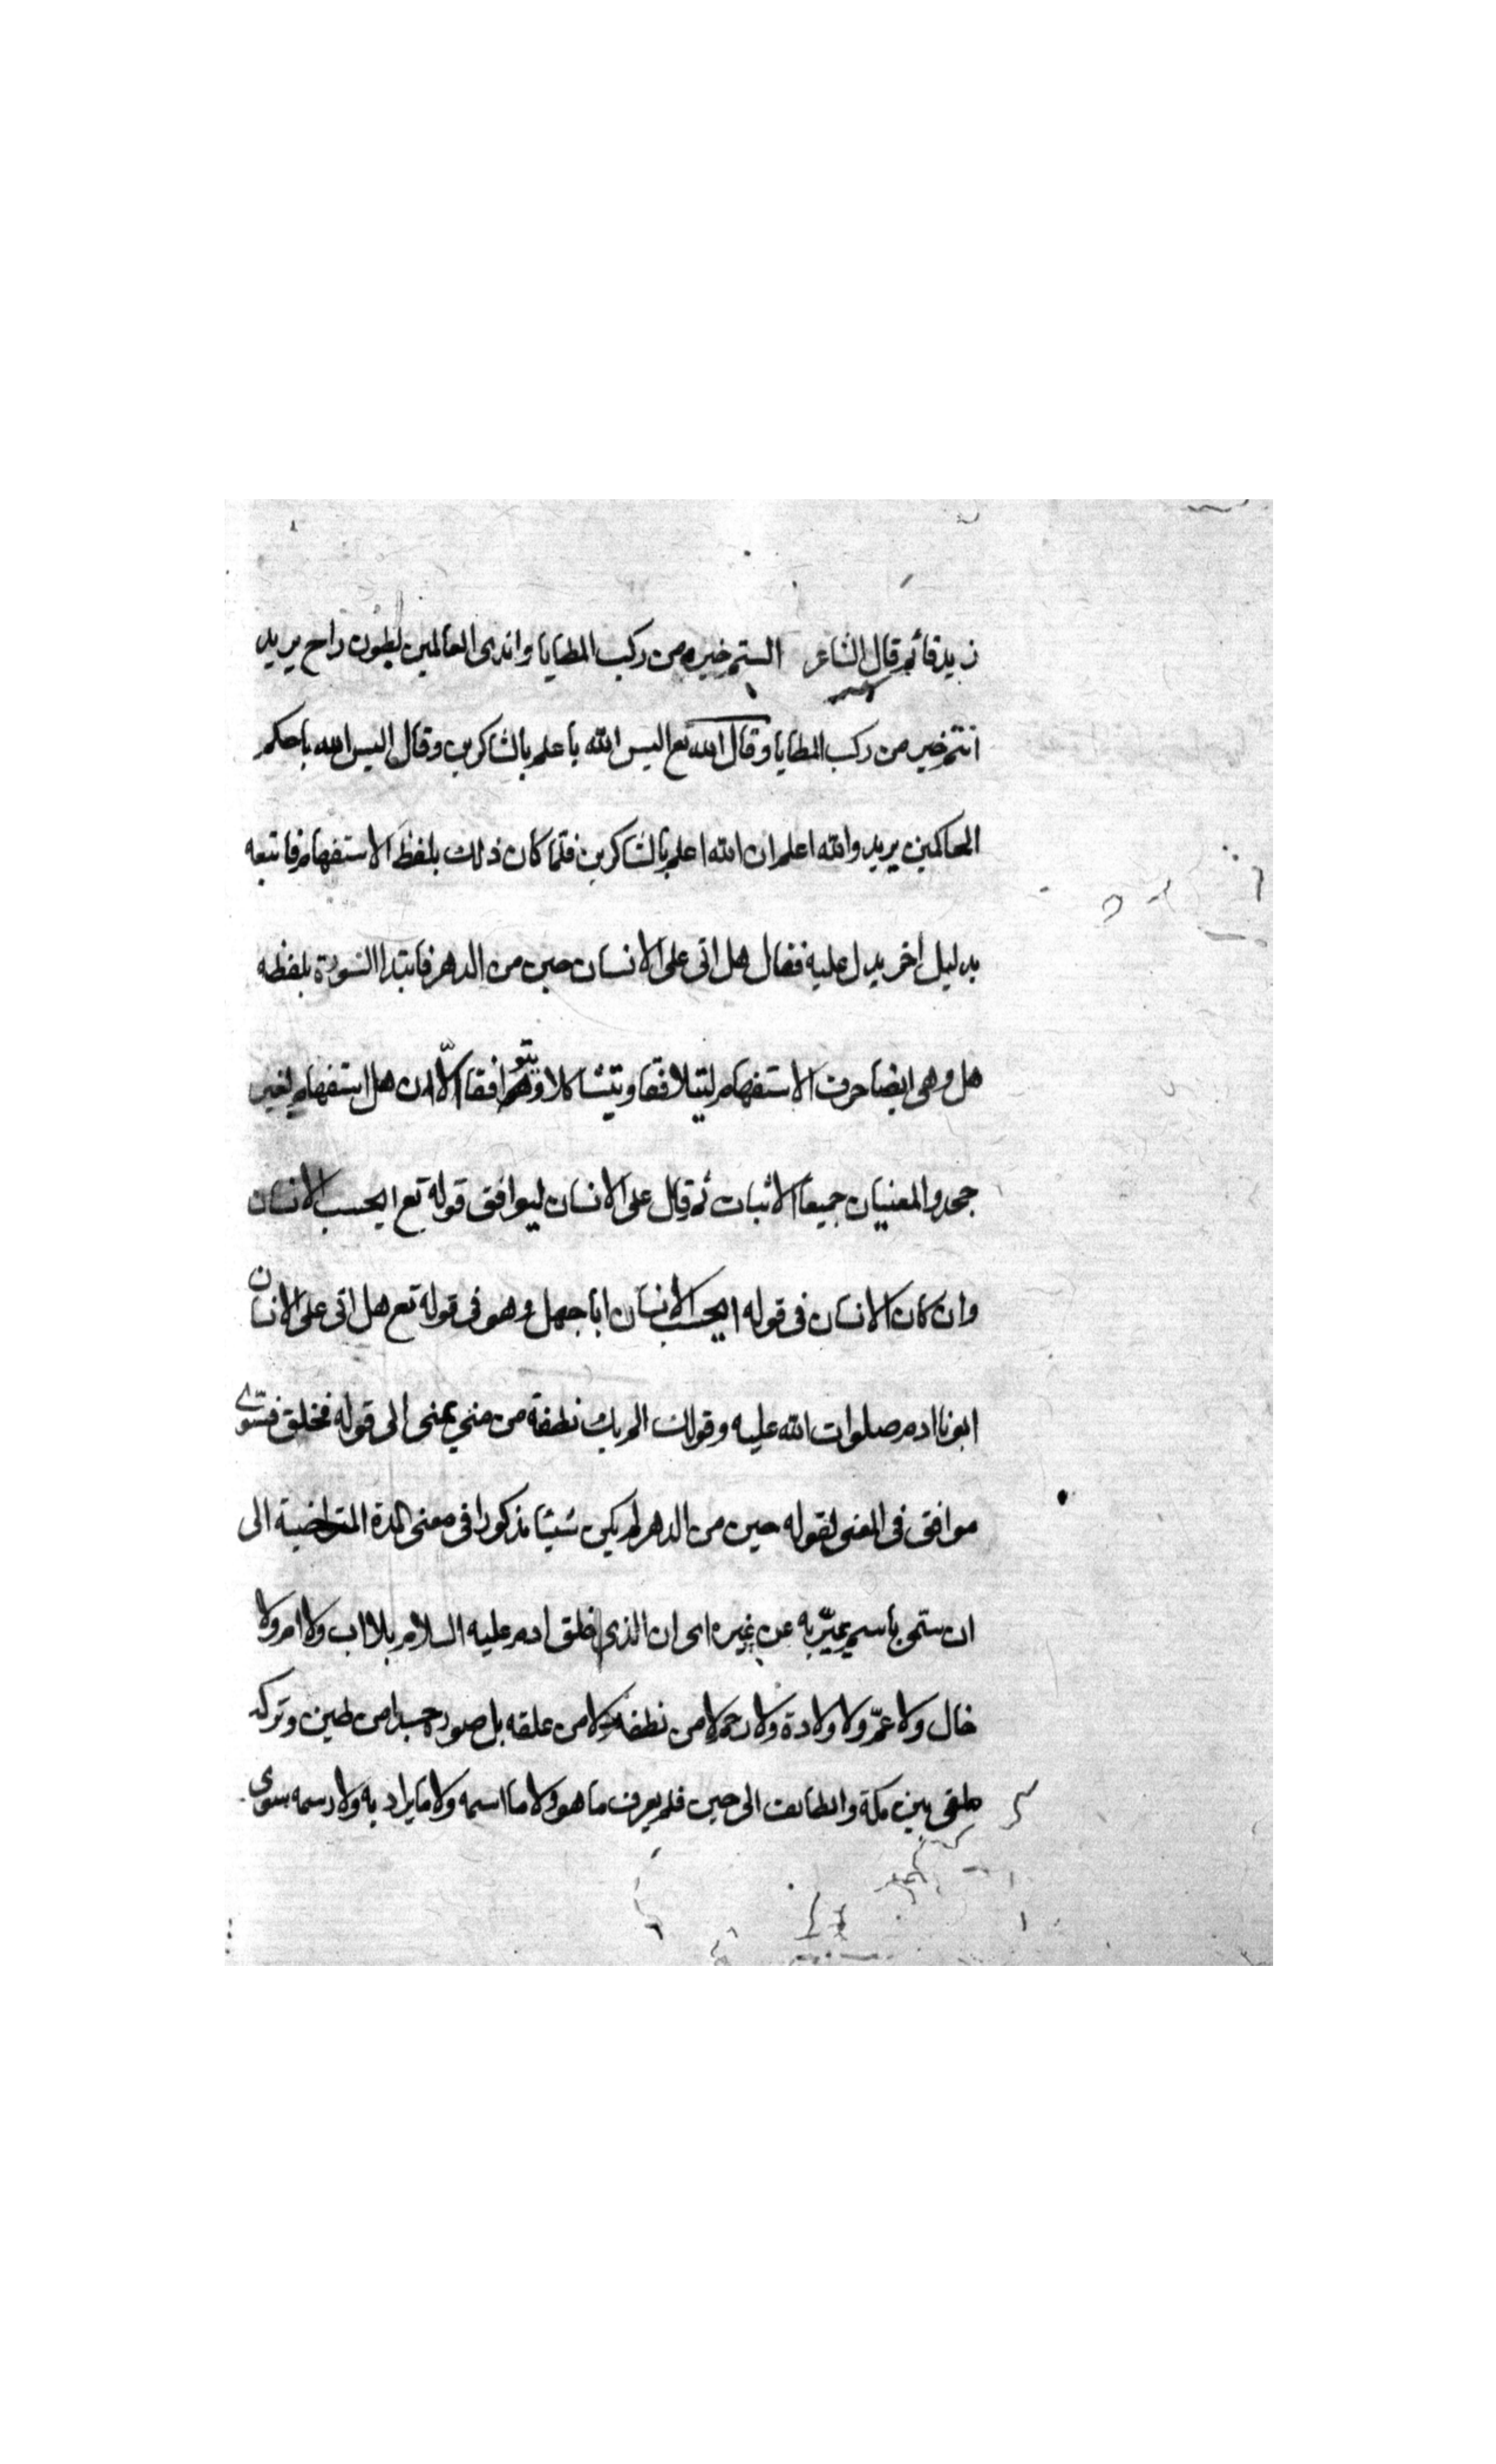 زيد قائم قال الشاعر الستم خير من ركب المطايا واندى العالمين بطون راح يريد
انتم خير من ركب المطايا وقال الله تع اليس الله باعلم بالشاكرين وقال اليس الله باحكم
الحاكمين يريد والله اعلم ان الله اعلم بالشاكرين فلما كان ذلك بلفظ الاستفهام فاتبعه
بدليل اخر يدل عليه فقال هل اتى على الانسان حين من الدهر فابتدا السورة بلفظه
هل وهي ايضا حرف الاستفهام ليتلافقا ويتشاكلا ويتوافقا الّا ان هل استفهام لغير
جحد والمعنيان جميعا الاثبات ثم قال على الانسان ليوافق قوله تع ايحسب الانسان
وان كان الانسان في قوله ايحسب الانسان ابا جهل وهو في قوله تع هل اتى على الانسان
ابونا ادم صلوات الله عليه وقولك الم يك نطفة من مني يمنى الى قوله فخلق فسّوى
موافق في المعنى لقوله حين من الدهر لم يكن شيئا مذكورا في معنى المدة المتراضية الى
ان ستمى باسم يميّز به عن غيره اى ان الذى خلق ادم عليه السلام بلا اب ولا ام ولا
خال ولا عمّ ولا ولادة ولا رحم لا من نطفه ولا من علقه بل صوره جسدا من طين وتركه
ملقى بين مكة والطائف الى حين فلم يعرف ما هو ولا ما اسمه ولا ما يراد به ولا رسمه سوى